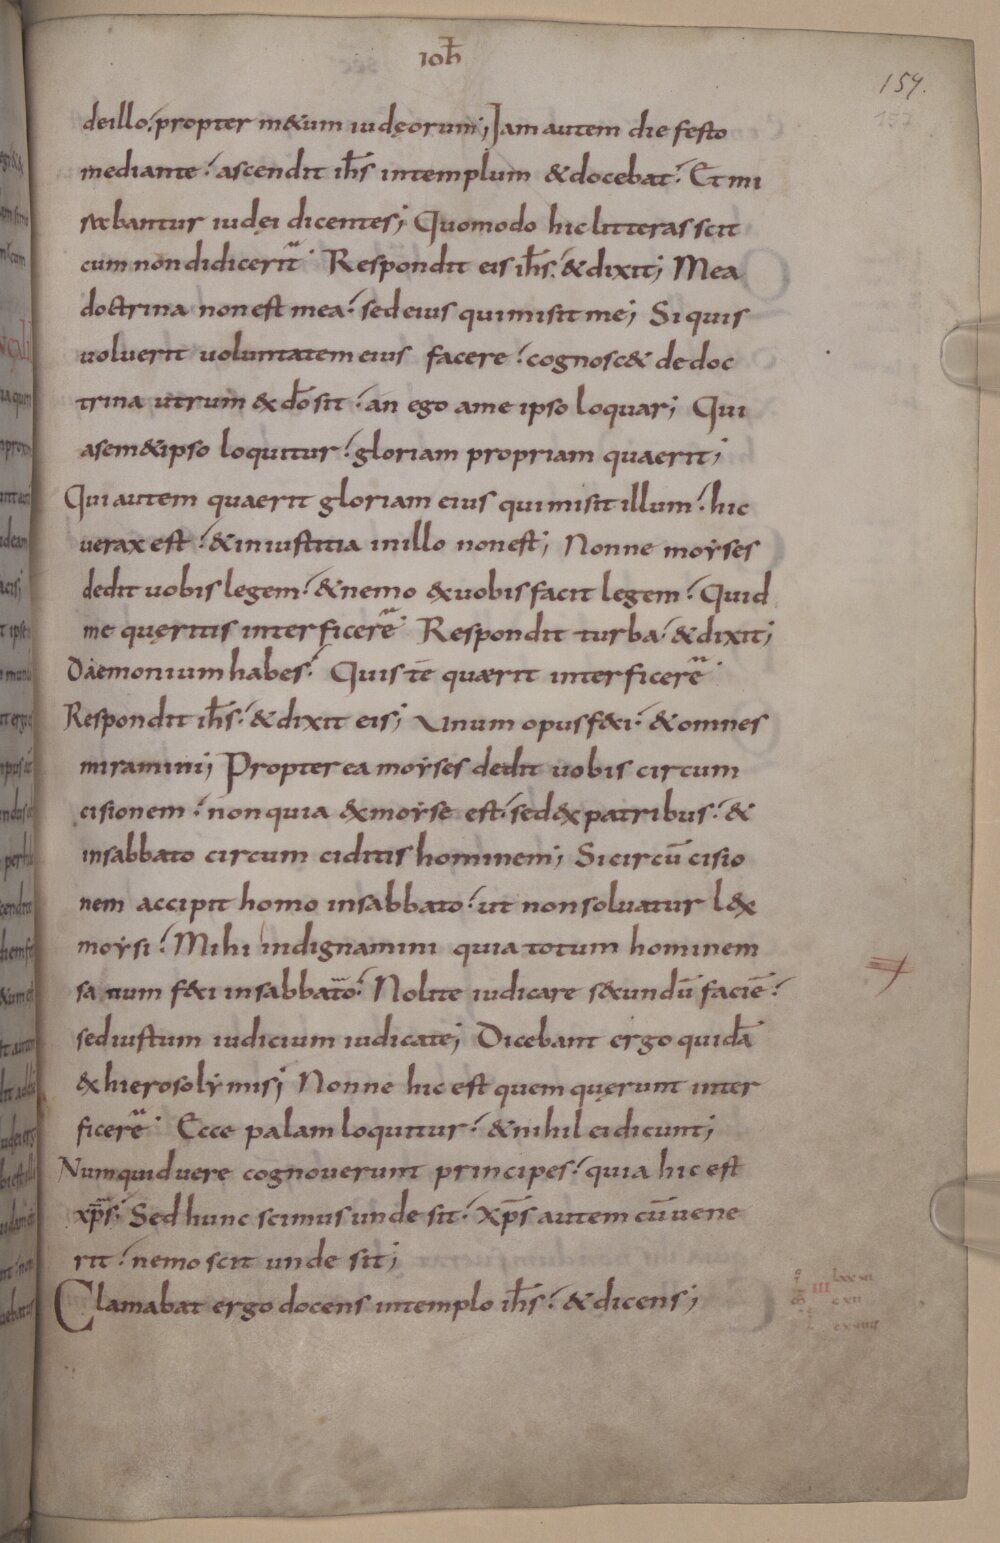 ioħ
154.
157
de illo, propter m&um iudęorum; Jam autem die festo
mediante, ascendit ihs in templum & docebat. Et mi
rabantur iudęi dicentes; Quomodo hic litteras scit
cum non didicerit. Respondit eis ihs, & dixit; Mea
doctrina non est mea, sed eius qui misit me; Si quis
uoluerit uoluntatem eius facere, cognosc& de doc
trina utrum ex do sit, an ego a me ipso loquar; Qui
a sem&ipso loquitur, gloriam propriam quaerit;
Qui autem quaerit gloriam eius qui misit illum, hic
uerax est, & iniustitia in illo non est; Nonne moẏses
dedit uobis legem, & nemo ex uobis facit legem. Quid
me quęritis interficere. Respondit turba, & dixit;
Daemonium habes. Quis te quaerit interficere.
Respondit ihs, & dixit eis; Unum opus feci, & omnes
miramini; Propterea moẏses dedit uobis circum
cisionem, non quia ex moẏse est, sed ex patribus, &
in sabbato circumciditis hominem; Si circū cisio
nem accipit homo in sabbato, ut non soluatur lex
moẏsi, Mihi indignamini quia totum hominem
sanum feci in sabbato. Nolite iudicare secundū faciē,
sed iustum iudicium iudicate; Dicebant ergo quidā
ex hierosolẏmis; Nonne hic est quem quęrunt inter
ficere. Ecce palam loquitur, & nihil ei dicunt;
Numquid uere cognouerunt principes, quia hic est
xp̄s. Sed hunc scimus unde sit. Xp̄s autem cū uene
rit, nemo scit unde sit;
Clamabat ergo docens in templo ihs, & dicens;
III